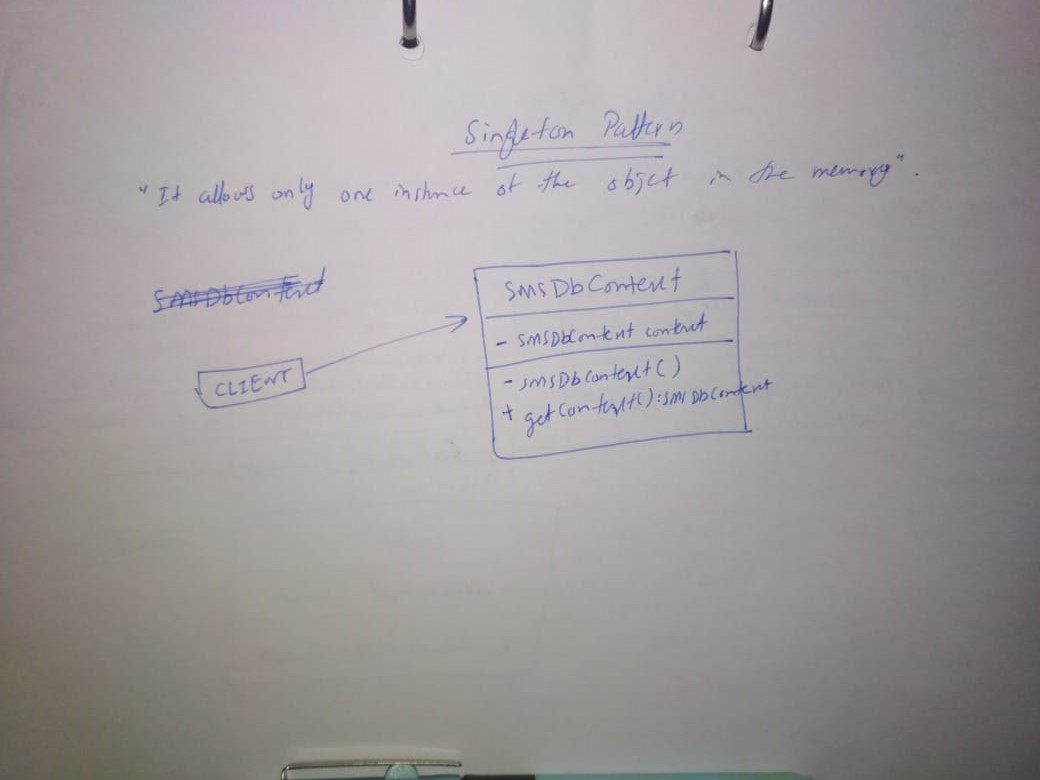 Singleton Pattern
"It allows only one instance of the object in the memory".
SmsDbContext
SmsDbContext
- SmsDbContext context
CLIENT
- SmsDbContext()
+ getContext():SmsDbContext